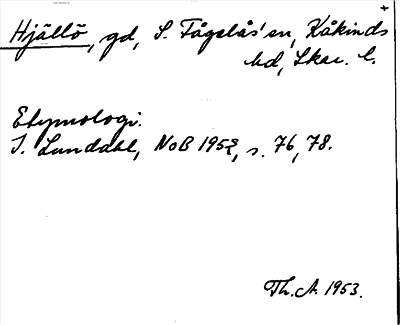 Hjällö, gd, S. Fågelås' sn, Kåkinds
hd, Skar. l.
Etymologi:
I. Lundahl, NoB 1952, s. 76, 78.
Th. A. 1953.